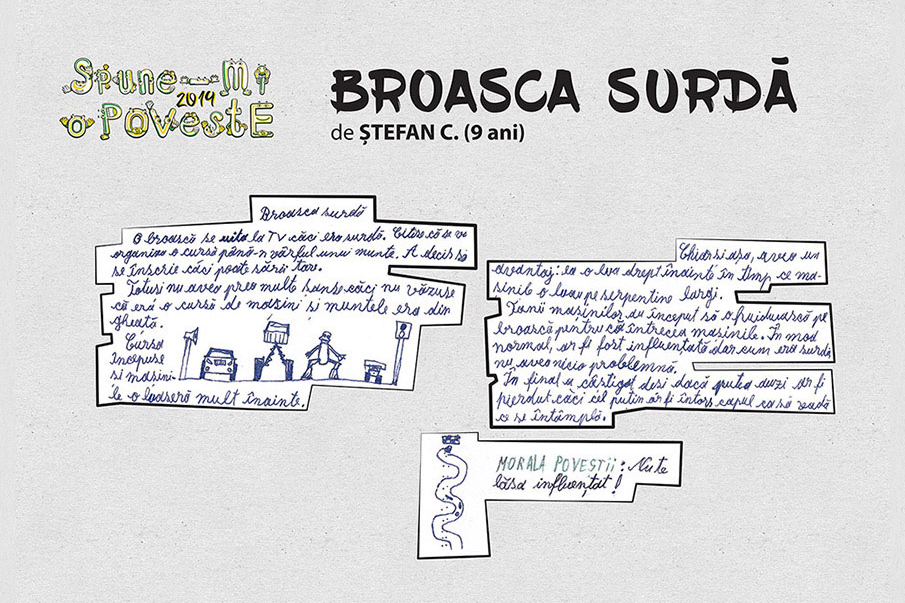 Spune-Mi
2019
o PovestE
BROASCA SURDĂ
de ȘTEFAN C. (9 ani)
Broasca surdă
O broască se uita la TV căci era surdă. Citise că se va
organiza o cursă până-n vârful unui munte. A decis să
se înscrie căci poate sări tare.
Totuși nu avea prea mult șanse căci nu văzuse
că era o cursă de mașini și muntele era din
gheață.
Cursa
începuse
și mași-
le o lăseră mult înainte.
Chiar si așa, avea un
avantaj: ea o lua drept înainte în timp ce ma-
șinile o luau pe serpentine largi.
Fanii mașinilor au început să o huiduiască pe
broască pentru că întrecea mașinile. În mod
normal, ar fi fost influențată dar cum era surdă
nu avea nicio problemă.
În final a câștigat deși dacă putea auzi ar fi
pierdut căci cel puțin ar fi întors capul ca să vadă
ce se întâmplă.
MORALA POVESTII: Nu te
lăsa influențat!